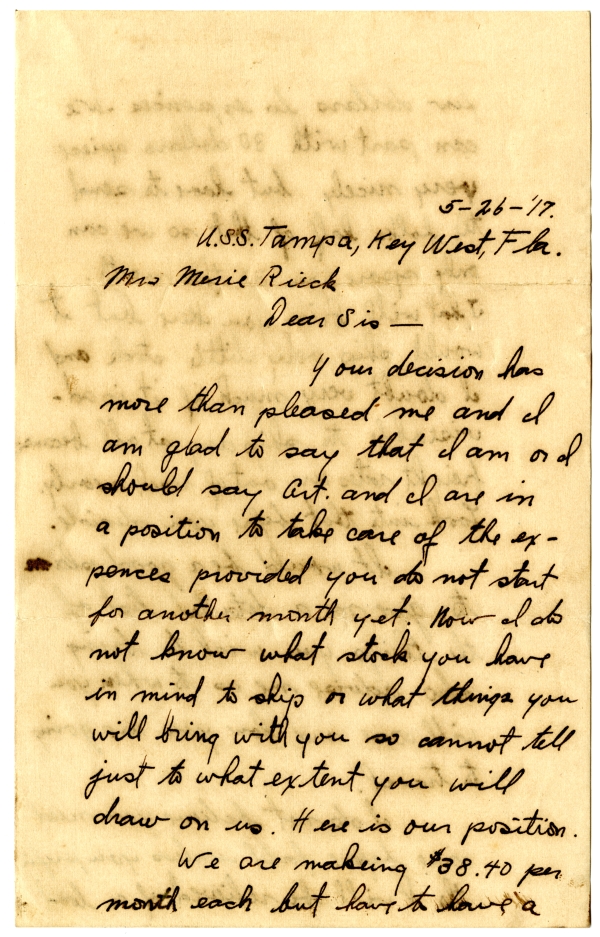 5-26-'17.
U.S.S. Tampa, Key West, Fla.
Mrs Merie Rieck
Dear Sis —
Your decision has
more than pleased me and I
am glad to say that I am or I
should say Art. and I are in
a position to take care of the ex-
pences provided you do not start
for another month yet. Now I do
not know what stock you have
in mind to ship or what things you
will bring with you so cannot tell
just to what extent you will
draw on us. Here is our position.
We are makeing $38.40 per
month each but have to have a